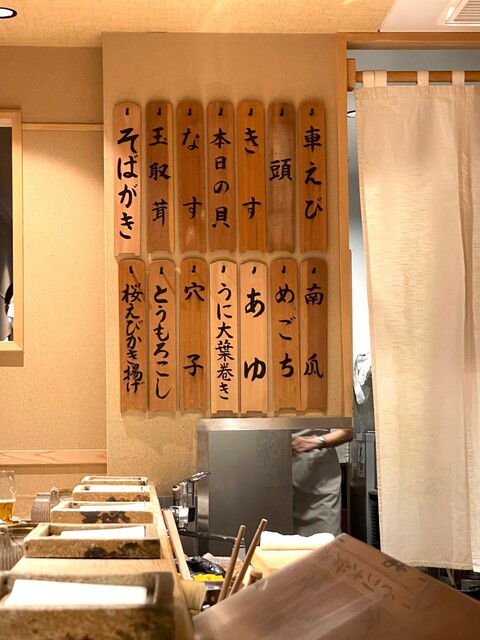 車えび
頭
きす
本日の貝
なす
玉取茸
そばがき
南瓜
めごち
あゆ
うに大葉巻き
穴子
とうもろこし
桜えびかき揚げ